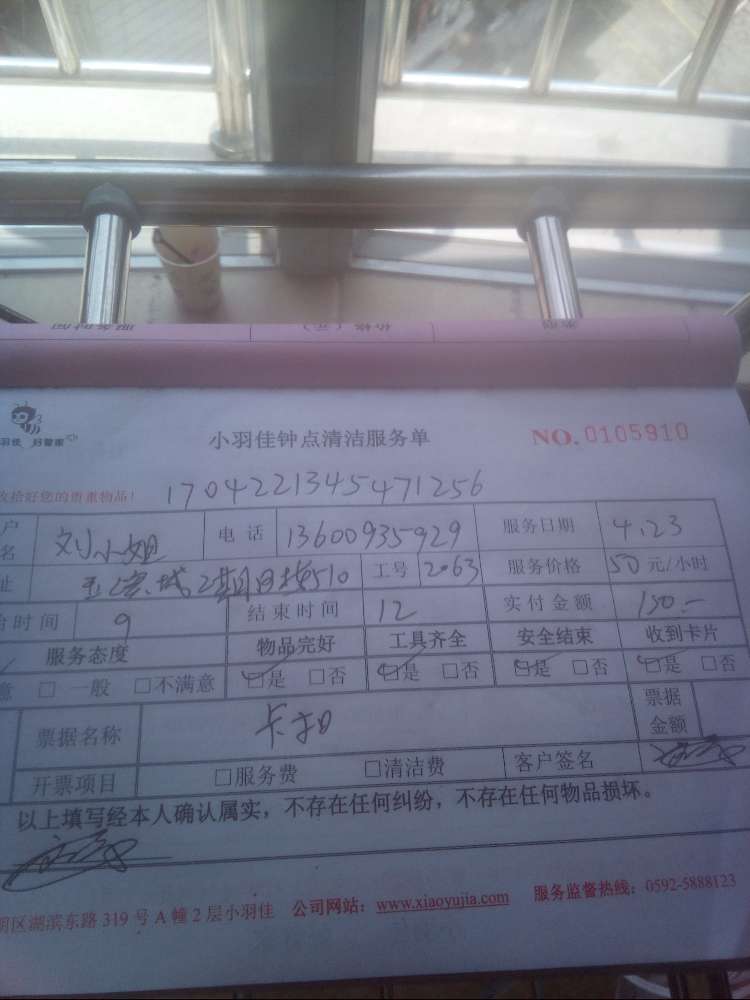 小羽佳钟点清洁服务单 NO.0105910
羽佳 好管家
收拾好您的贵重物品! 1704221345471256
户名 刘小姐 电话 13600935929 服务日期 4.23
址 2期日接510 工号 2063 服务价格 50元/小时
始时间 9 结束时间 12 实付金额 150.-
服务态度 物品完好 工具齐全 安全结束 收到卡片
意 □一般 □不满意 □是 □否 □是 □否 □是 □否 □是 □否
票据名称 卡扣 票据金额
开票项目 □服务费 □清洁费 客户签名
以上填写经本人确认属实，不存在任何纠纷，不存在任何物品损坏。
明区湖滨东路319号A幢2层小羽佳 公司网站：www.xiaoyujia.com 服务监督热线：0592-5888123